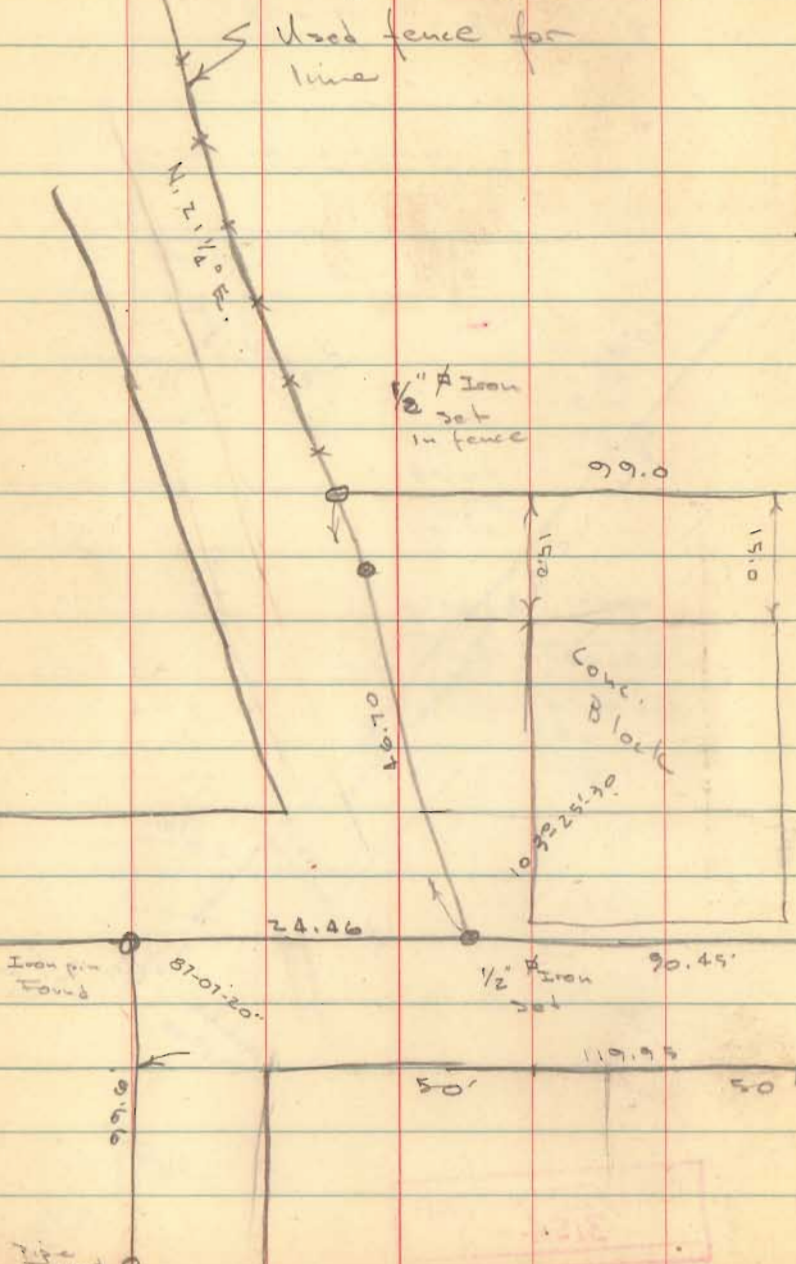 Used fence for
line
N. 21 1/4° E.
1/2" ⌀ Iron
set
in fence
99.0
15.0
15.0
Conc.
Block
46.70
103°-25'-30"
24.46
Iron pin
Found
87-07-20"
1/2" ⌀ Iron
set
90.45'
119.95
50'
50
99.6'
Pipe